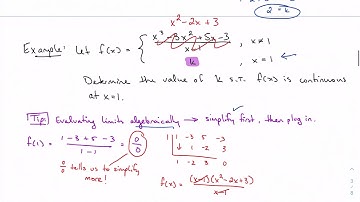 2 = k
x² - 2x + 3
Example: Let f(x) = { x³ - 3x² + 5x - 3 / x - 1 , x ≠ 1
k , x = 1
Determine the value of k s.t. f(x) is continuous
at x = 1.
Tip: Evaluating limits algebraically → simplify first, then plug in.
f(1) = 1 - 3 + 5 - 3 / 1 - 1 = 0/0
1 | 1 -3 5 -3
↓ 1 -2 3
1 -2 3 0
0/0 tells us to simplify
more!
f(x) = (x-1)(x² - 2x + 3) / x-1